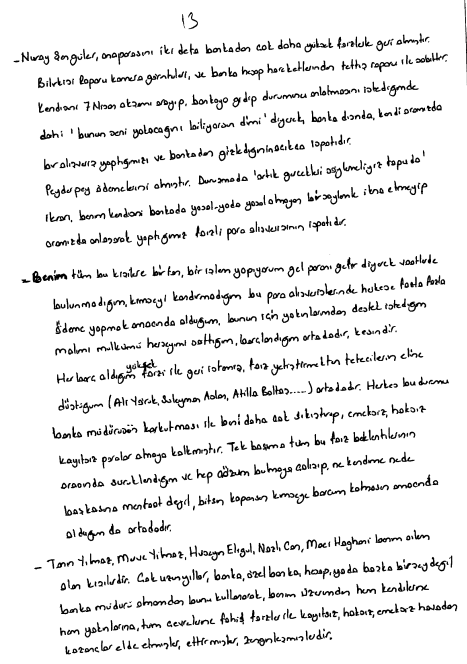 13
- Nuray Şengüler, anaparasını iki defa bankadan çok daha yüksek faizlerle geri almıştır.
Bilirkişi Raporu kamera görüntüleri, ve banka hesap hareketlerinden teftiş raporu ile sabittir.
Kendisini 7 Nisan akşamı arayıp, bankaya gidip durumunu anlatmasını istediğimde
dahi 'bunun seni yakacağını biliyorsun dimi' diyerek, banka dışında, kendi aramızda
bir alışveriş yaptığımızı ve bankadan gizlediğinin açıkça ispatıdır.
Peyderpey ödemelerini almıştır. Duruşmada 'artık gerçekleri söylemeliyiz tapu da'
ikrarı, benim kendisini bankada yasal-yada yasal olmayan bir söylemle ikna etmeyip
aramızda anlaşarak yaptığımız faizli para alışverişinin ispatıdır.
- Benim tüm bu kişilere bir fon, bir işlem yapıyorum gel paranı getir diyerek vaatlerde
bulunmadığım, kimseyi kandırmadığım bu para alışverişlerinde herkese fazla fazla
ödeme yapmak amacında olduğum, bunun için yakınlarımdan destek istediğim
malımı mülkümü herşeyimi sattığım, borçlandığım ortadadır, kesindir.
Her borç aldığım yüksek faizi ile geri istemiş, faiz yetiştirmekten tefecilerin eline
düştüğüm (Ali Yörük, Süleyman Aslan, Atilla Baltaş.....) ortadadır. Herkes bu durumu
banka müdürüsün korkutması ile beni daha çok sıkıştırıp, emeksiz, haksız
kayıtsız paralar almaya kalkmıştır. Tek başıma tüm bu faiz beklentilerinin
arasında sürüklendiğim ve hep çözüm bulmaya çalışıp, ne kendime nede
başkasına menfaat değil, bitsin kapansın kimseye borcum kalmasın amacında
olduğum da ortadadır.
- Tanın Yılmaz, Merve Yılmaz, Hüseyin Eligül, Nazlı Can, Maci Haghani benim ailem
olan kişilerdir. Çok uzun yıllar, banka, özel banka, hesap, yada başka birşey değil
banka müdürü olmamdan bunu kullanarak, benim üzerimden hem kendilerine
hem yakınlarına, tüm çevrelerine fahiş faizler ile kayıtsız, haksız, emeksiz havadan
kazançlar elde etmişler, ettirmişler, zenginleşmişlerdir.